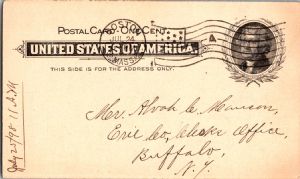 POSTAL CARD - ONE CENT.
UNITED STATES OF AMERICA.
THIS SIDE IS FOR THE ADDRESS ONLY.
BOSTON
JUL 24
MASS.
Mr. Alvah C.
Erie Co. Clerks Office,
Buffalo,
N. Y.
July 25/98 11 A.M